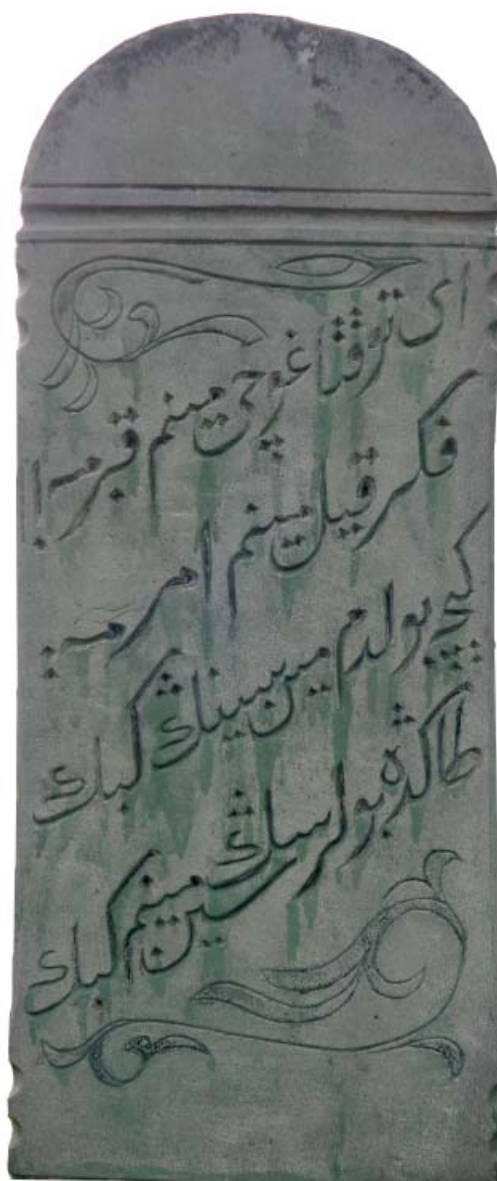 ای توقتاغوچی مینم قبرمه!
فکر قیل مینم امرمه:
کیچه بولدم مین سینڭ کبك
طاڭده بولرسڭ سین مینم کبك